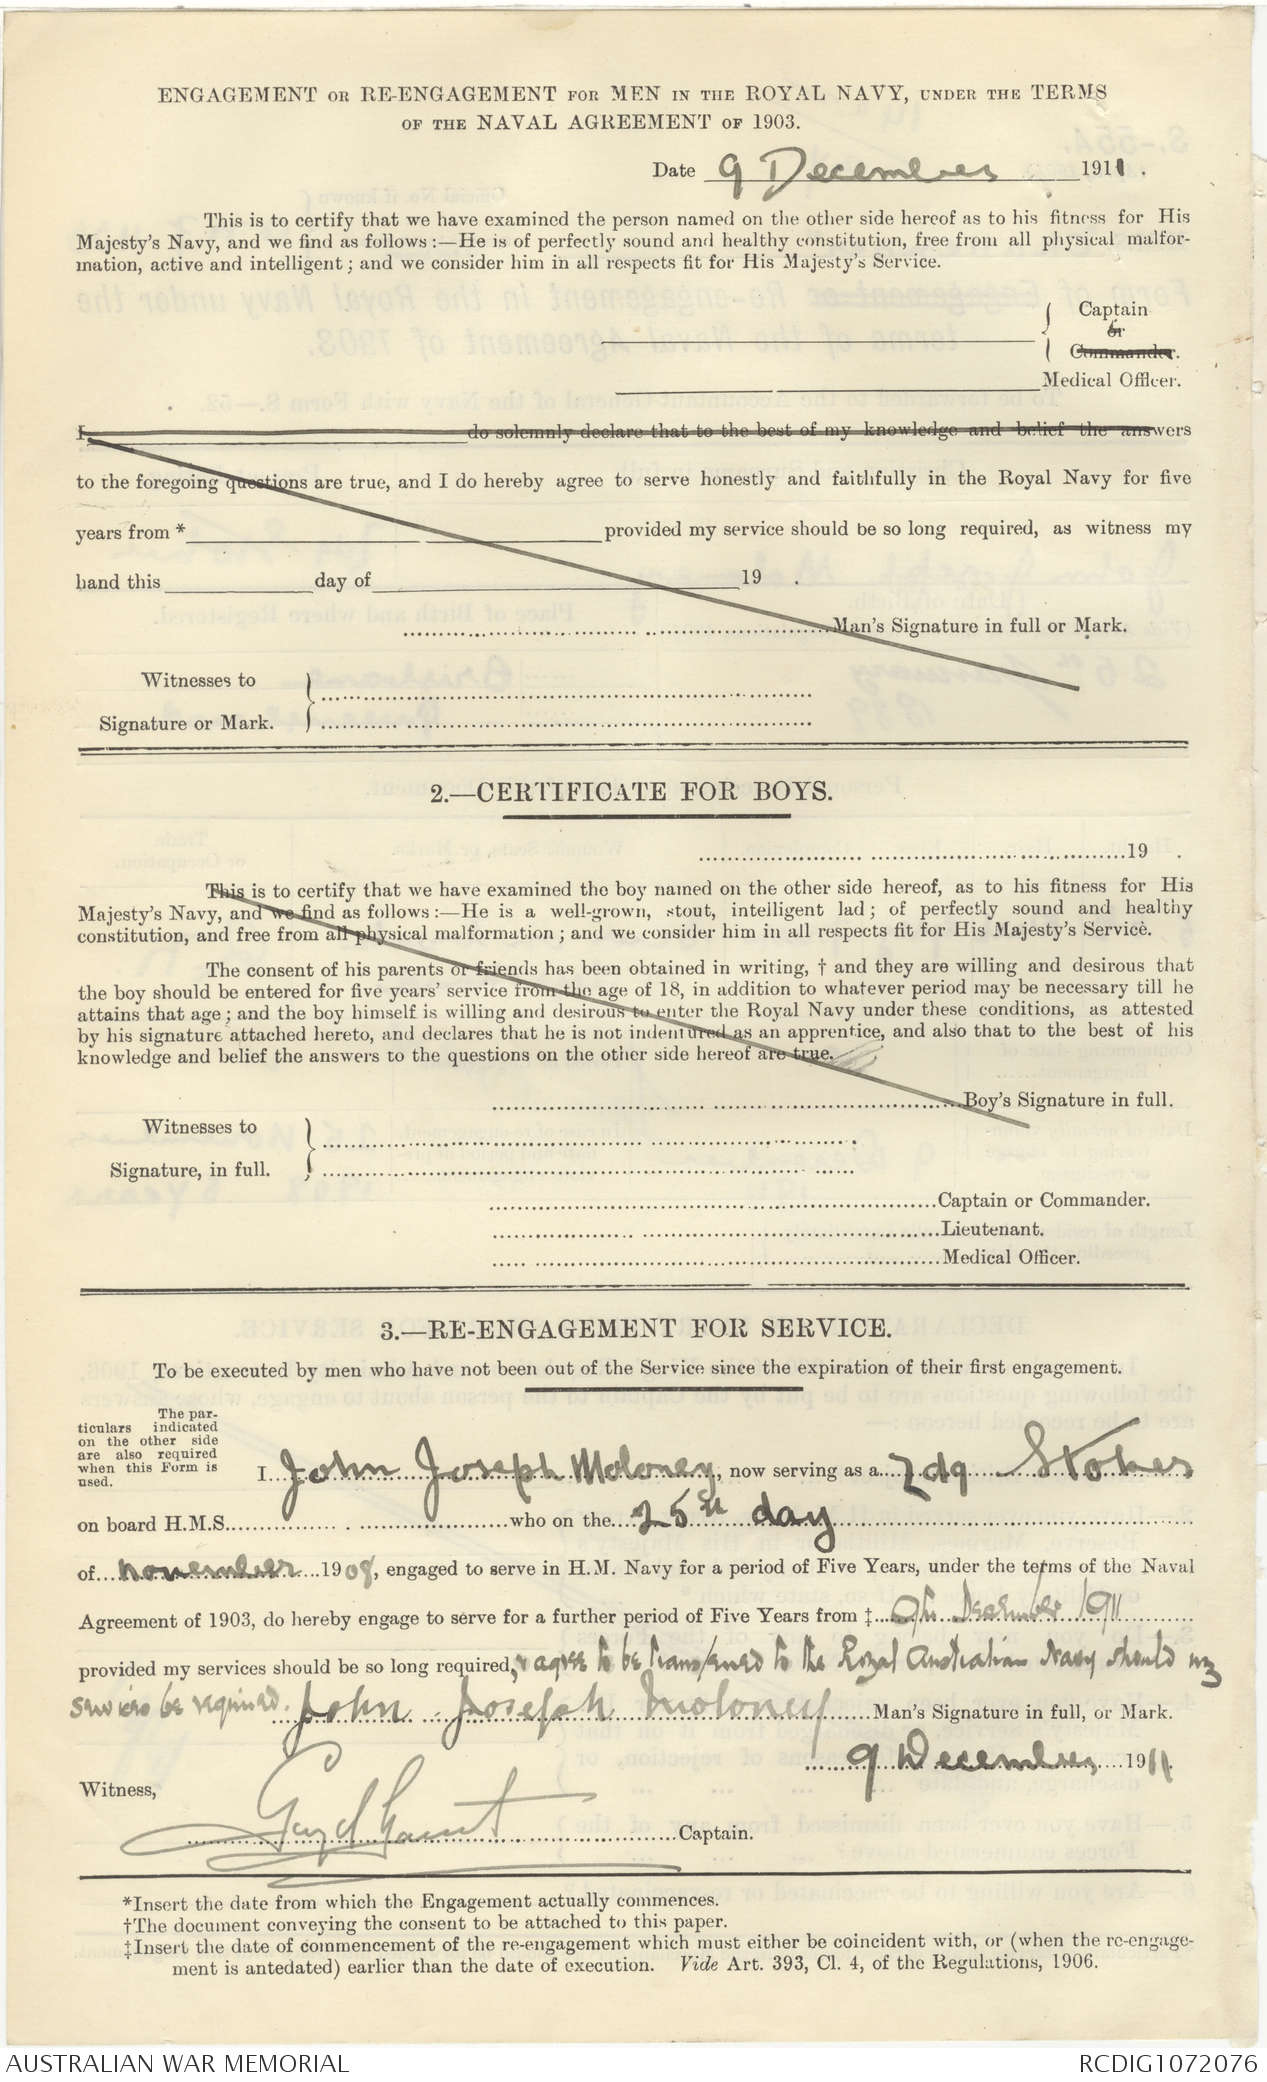 ENGAGEMENT OR RE-ENGAGEMENT FOR MEN IN THE ROYAL NAVY, UNDER THE TERMS
OF THE NAVAL AGREEMENT OF 1903.
Date 9 December 1911.
This is to certify that we have examined the person named on the other side hereof as to his fitness for His
Majesty's Navy, and we find as follows :—He is of perfectly sound and healthy constitution, free from all physical malfor-
mation, active and intelligent ; and we consider him in all respects fit for His Majesty's Service.
Captain
or
Commander.
Medical Officer.
I do solemnly declare that to the best of my knowledge and belief the answers
to the foregoing questions are true, and I do hereby agree to serve honestly and faithfully in the Royal Navy for five
years from * provided my service should be so long required, as witness my
hand this day of 19 .
Man's Signature in full or Mark.
Witnesses to
Signature or Mark.
2.—CERTIFICATE FOR BOYS.
19 .
This is to certify that we have examined the boy named on the other side hereof, as to his fitness for His
Majesty's Navy, and we find as follows :—He is a well-grown, stout, intelligent lad ; of perfectly sound and healthy
constitution, and free from all physical malformation ; and we consider him in all respects fit for His Majesty's Service.
The consent of his parents or friends has been obtained in writing, † and they are willing and desirous that
the boy should be entered for five years' service from the age of 18, in addition to whatever period may be necessary till he
attains that age ; and the boy himself is willing and desirous to enter the Royal Navy under these conditions, as attested
by his signature attached hereto, and declares that he is not indentured as an apprentice, and also that to the best of his
knowledge and belief the answers to the questions on the other side hereof are true.
Boy's Signature in full.
Witnesses to
Signature, in full.
Captain or Commander.
Lieutenant.
Medical Officer.
3.—RE-ENGAGEMENT FOR SERVICE.
To be executed by men who have not been out of the Service since the expiration of their first engagement.
The par-
ticulars indicated
on the other side
are also required
when this Form is
used.
I John Joseph Moloney, now serving as a Stoker
on board H.M.S. who on the 25th day
of november 1908, engaged to serve in H.M. Navy for a period of Five Years, under the terms of the Naval
Agreement of 1903, do hereby engage to serve for a further period of Five Years from ‡ 9th December 1911
provided my services should be so long required, & agree to be transferred to the Royal Australian Navy should my
services be required. John Joseph Moloney Man's Signature in full, or Mark.
9 December 1911.
Witness,
Captain.
*Insert the date from which the Engagement actually commences.
†The document conveying the consent to be attached to this paper.
‡Insert the date of commencement of the re-engagement which must either be coincident with, or (when the re-engage-
ment is antedated) earlier than the date of execution. Vide Art. 393, Cl. 4, of the Regulations, 1906.
AUSTRALIAN WAR MEMORIAL
RCDIG1072076